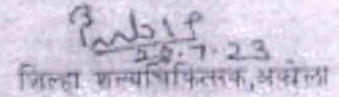 28.7.23
जिल्हा शल्यचिकित्सक, अकोला